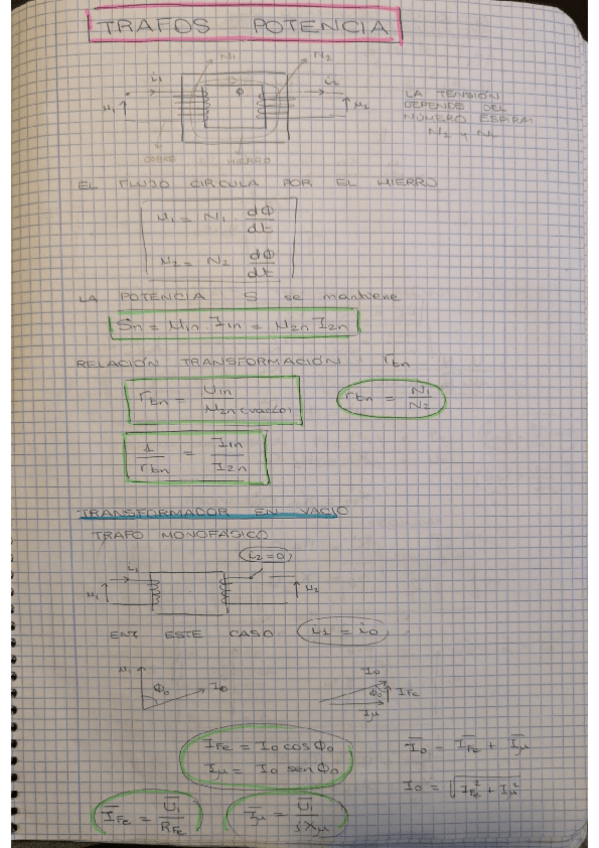 TRAFOS POTENCIA
N1 N2
i1 i2
u1 Φ u2
LA TENSIÓN
DEPENDE DEL
NÚMERO ESPIRAS
N1 y N2
COBRE HIERRO
EL FLUJO CIRCULA POR EL HIERRO
u1 = N1 · dΦ/dt
u2 = N2 dΦ/dt
LA POTENCIA S se mantiene
Sn = U1n · I1n = U2n I2n
RELACIÓN TRANSFORMACIÓN rtn
rtn = U1n / U2n (vacío)
rtn = N1/N2
1/rtn = I1n/I2n
TRANSFORMADOR EN VACIO
TRAFO MONOFÁSICO
i2=0
i1
u1 u2
ESTE CASO i1 = i0
u1 Φ0 I0
I0 Φ0 IFe
Iμ
IFe = I0 cos Φ0
Iμ = I0 sen Φ0
I0 = IFe + Iμ
I0 = √(IFe² + Iμ²)
IFe = U1/RFe
Iμ = U1/jXμ